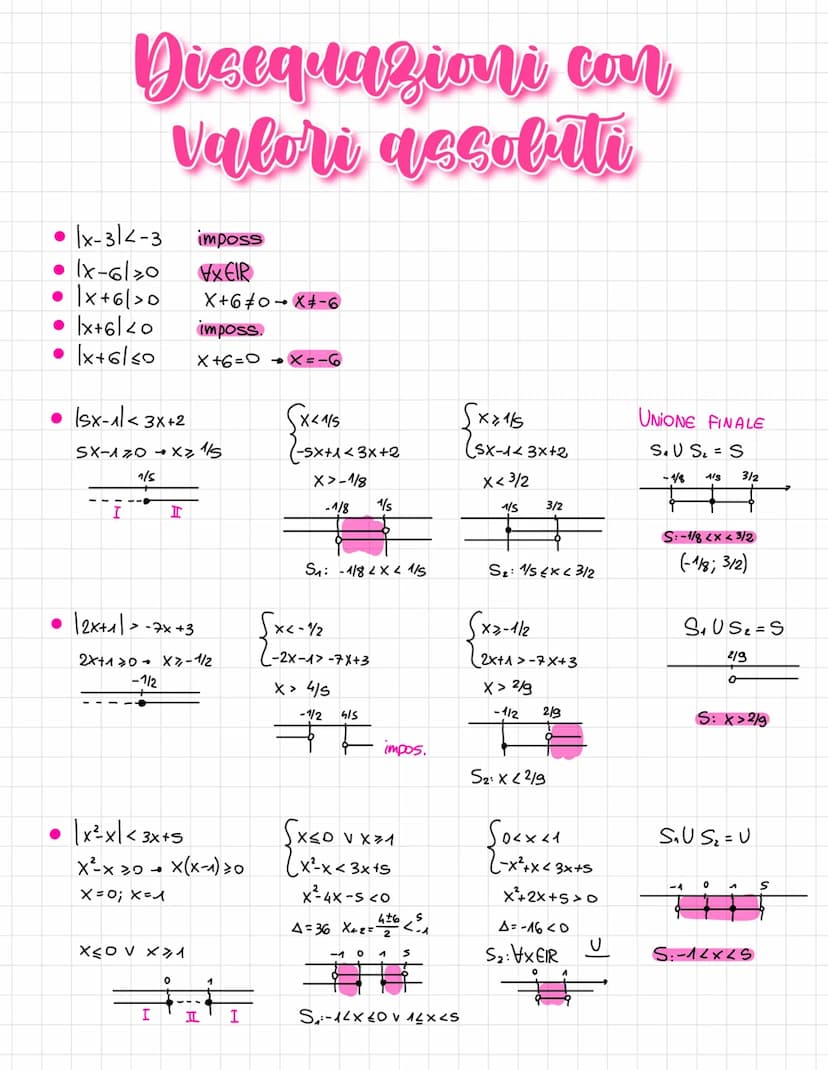 Disequazioni con
valori assoluti
• |x-3|<-3 imposs
• |x-6|⩾0 ∀x∈ℝ
• |x+6|>0 x+6≠0 → x≠-6
• |x+6|<0 imposs.
• |x+6|≤0 x+6=0 → x=-6
• |5x-1|<3x+2
5x-1⩾0 → x⩾1/5
1/5
I II
{x<1/5
{-5x+1<3x+2
x>-1/8
-1/8 1/5
S₁: -1/8<x<1/5
{x⩾1/5
{5x-1<3x+2
x<3/2
1/5 3/2
S₂: 1/5≤x<3/2
UNIONE FINALE
S₁∪S₂=S
-1/8 1/5 3/2
S:-1/8<x<3/2
(-1/8; 3/2)
• |2x+1|>-7x+3
2x+1⩾0 → x⩾-1/2
-1/2
{x<-1/2
{-2x-1>-7x+3
x>4/5
-1/2 4/5
impos.
{x⩾-1/2
{2x+1>-7x+3
x>2/9
-1/2 2/9
S₂: x<2/9
S₁∪S₂=S
2/9
S: x>2/9
• |x²-x|<3x+5
x²-x⩾0 → x(x-1)⩾0
x=0; x=1
x≤0 ∨ x⩾1
0 1
I II I
{x≤0 ∨ x⩾1
{x²-x<3x+5
x²-4x-5<0
Δ=36 x₁,₂=4±6/2 < 5 -1
-1 0 1 5
S₁:-1<x≤0 ∨ 1≤x<5
{0<x<1
{-x²+x<3x+5
x²+2x+5>0
Δ=-16<0
S₂:∀x∈ℝ U
0 1
S₁∪S₂=U
-1 0 1 5
S:-1<x<5